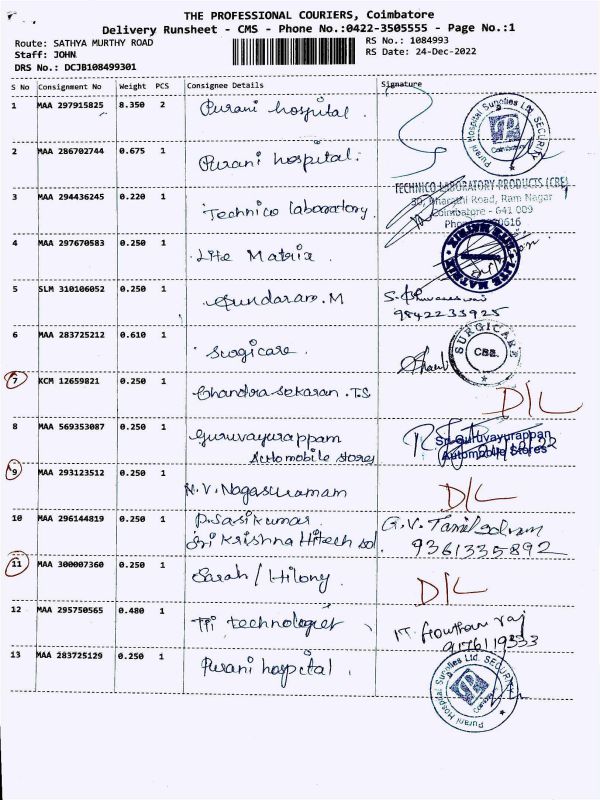 THE PROFESSIONAL COURIERS, Coimbatore
Delivery Runsheet - CMS - Phone No.:0422-3505555 - Page No.:1
Route: SATHYA MURTHY ROAD
RS No.: 1084993
Staff: JOHN
RS Date: 24-Dec-2022
DRS No.: DCJB108499301
S No Consignment No Weight PCS Consignee Details Signature
1 MAA 297915825 8.350 2 Purani hospital.
Purani Hospital Supplies Ltd. SECURITY
Coimbatore
2 MAA 286702744 0.675 1 Purani hospital.
3 MAA 294436245 0.220 1 Technico laboratory.
TECHNICO LABORATORY PRODUCTS (CBE)
Bharathi Road, Ram Nagar
Coimbatore - 641 009
4 MAA 297670583 0.250 1 Lite Matrix.
LITE MATRIX
5 SLM 310106052 0.250 1 Gundaram.M
9842233925
6 MAA 283725212 0.610 1 Surgicare.
SURGICARE
CBE.
7 KCM 12659821 0.250 1 Chandrasekaran.T.S D/L
8 MAA 569353087 0.250 1 Guruvayurappam
Automobile stores
Sri Guruvayurappan
Automobile Stores
9 MAA 293123512 0.250 1 N.V.Nagasuramam D/L
10 MAA 296144819 0.250 1 P.Sasikumar.
Sri Krishna Hitech sol.
G.V. Tamilselvam
9361335892
11 MAA 300007360 0.250 1 Sarah/Hilony. D/L
12 MAA 295750565 0.480 1 Tri technologies
9176119333
13 MAA 283725129 0.250 1 Purani hospital.
Purani Hospital Supplies Ltd. SECURITY
Coimbatore